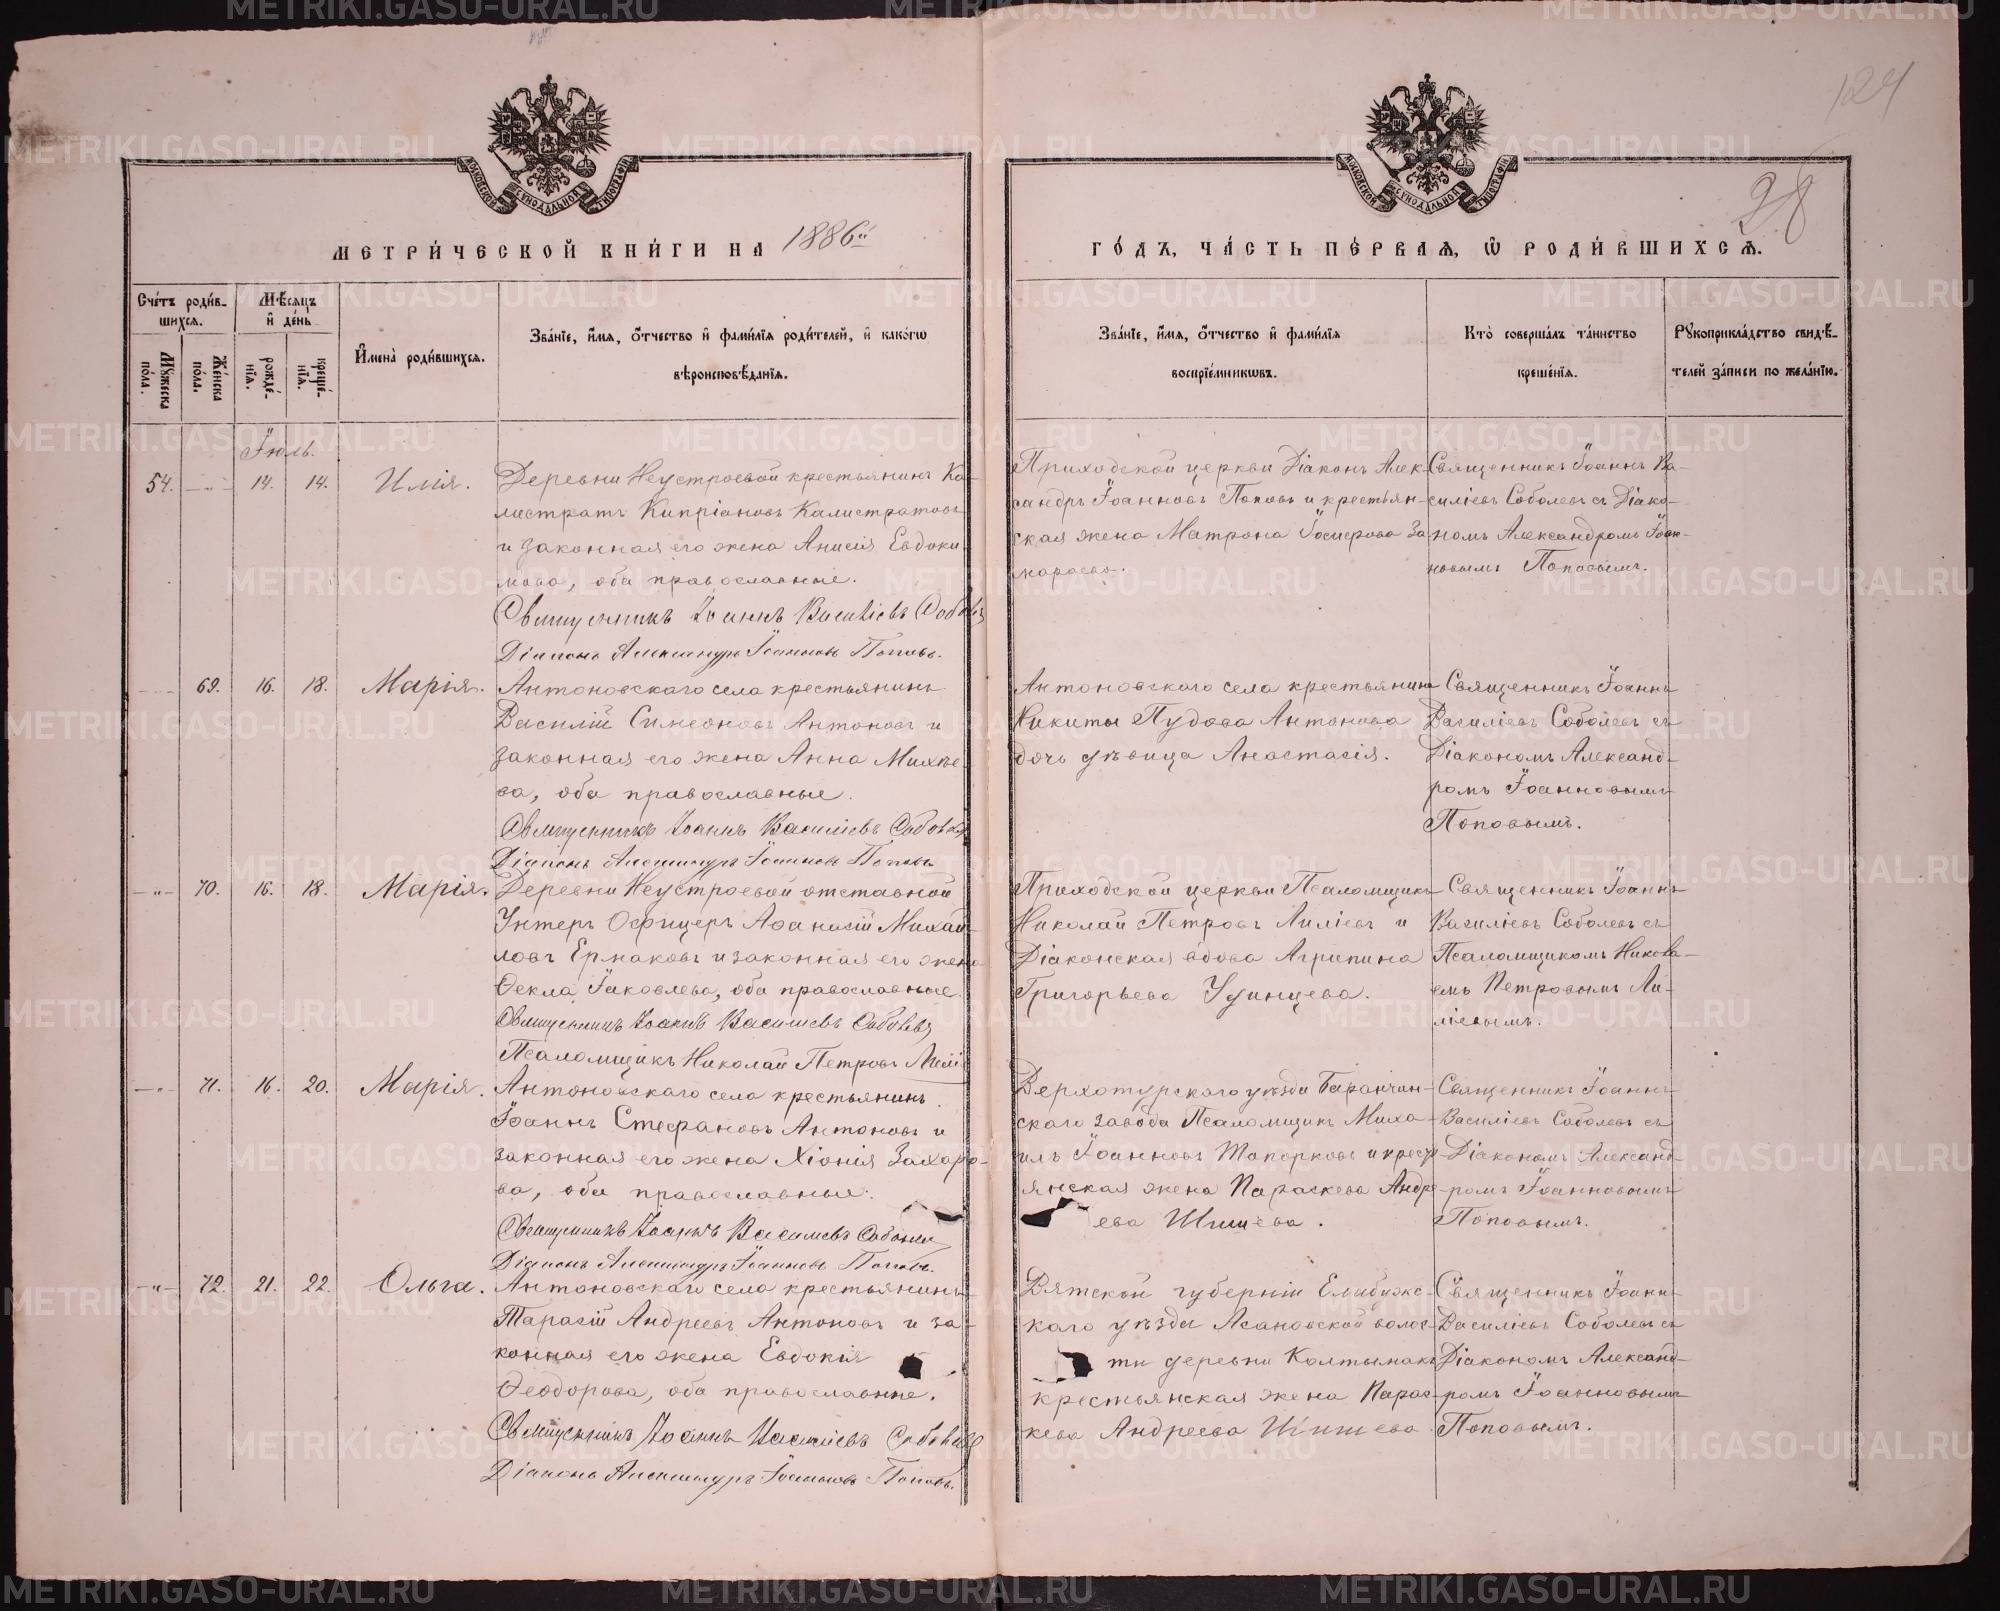 124
28
МОСКОВСКОЙ СУНОДАЛЬНОЙ ТИПОГРАФІИ
МОСКОВСКОЙ СУНОДАЛЬНОЙ ТИПОГРАФІИ
МЕТРИ́ЧЕСКОЙ КНИ́ГИ НА 1886й
ГО́ДЪ, ЧА́СТЬ ПЕ́РВАѦ, Ѽ РОДИ́ВШИХСѦ.
Сче́тъ роди́в-
шихсѧ.
Мꙋ́жеска по́ла.
Же́нска по́ла.
Мѣ́сѧцъ
и҆ де́нь
рожде́-
нїѧ.
креще́-
нїѧ.
И҆мена̀ роди́вшихсѧ.
Зва́нїе, и҆́мѧ, ѻ҆́тчество и҆ фами́лїѧ роди́телей, и҆ како́гѡ
вѣроисповѣ́данїѧ.
Зва́нїе, и҆́мѧ, ѻ҆́тчество и҆ фами́лїѧ
воспрїе́мникѡвъ.
Кто̀ соверша́лъ та́инство
креще́нїѧ.
Рꙋкоприкла́дство свидѣ́-
телей за́писи по жела́нїю.
Іюль.
54. -"- 14. 14. Илія.
Деревни Неустроевой крестьянинъ Ка-
листратъ Кипріановъ Калистратовъ
и законная его жена Анисія Евдоки-
мова, оба православные.
Священникъ Іоаннъ Василіевъ Соболевъ
Діаконъ Александръ Іоанновъ Поповъ.
Приходской церкви Діаконъ Алек-
сандръ Іоанновъ Поповъ и крестьян-
ская жена Матрона
Священникъ Іоаннъ Ва-
силіевъ Соболевъ съ Діако-
номъ Александромъ Іоан-
новымъ Поповымъ.
69. 16. 18. Марія.
Антоновскаго села крестьянинъ
Василій Симеоновъ Антоновъ и
законная его жена Анна Михѣе-
ва, оба православные.
Священникъ Іоаннъ Василіевъ Соболевъ
Діаконъ Александръ Іоанновъ Поповъ
Антоновскаго села крестьянина
Никиты Пудова Антонова
дочь дѣвица Анастасія.
Священникъ Іоаннъ
Василіевъ Соболевъ съ
Діакономъ Александ-
ромъ Іоанновымъ
Поповымъ.
-"- 70. 16. 18. Марія.
Деревни Неустроевой отставной
Унтеръ Офицеръ Аѳанасій Михай-
ловъ Ермаковъ и законная его жена
Ѳекла Іаковлева, оба православные.
Священникъ Іоаннъ Василіевъ Соболевъ
Псаломщикъ Николай Петровъ Лиліевъ
Приходской церкви Псаломщикъ
Николай Петровъ Лиліевъ и
Діаконская вдова Агрипина
Григорьева Удинцева.
Священникъ Іоаннъ
Василіевъ Соболевъ съ
Псаломщикомъ Никола-
емъ Петровымъ Ли-
ліевымъ.
-"- 71. 16. 20. Марія.
Антоновскаго села крестьянинъ
Іоаннъ Стефановъ Антоновъ и
законная его жена Хіонія Захаро-
ва, оба православные.
Священникъ Іоаннъ Василіевъ Соболевъ
Діаконъ Александръ Іоанновъ Поповъ.
Верхотурскаго уѣзда Баранчин-
скаго завода Псаломщикъ Миха-
илъ Іоанновъ Топорковъ и крест-
янская жена Параскева Андре-
ева Шишева.
Священникъ Іоаннъ
Василіевъ Соболевъ съ
Діакономъ Александ-
ромъ Іоанновымъ
Поповымъ.
-"- 72. 21. 22. Ольга.
Антоновскаго села крестьянинъ
Тарасій Андреевъ Антоновъ и за-
конная его жена Евдокія
Ѳеодорова, оба православные.
Священникъ Іоаннъ Василіевъ Соболевъ
Діаконъ Александръ Іоанновъ Поповъ.
Вятской губерніи Елабужс-
каго уѣзда Асановской волос-
ти деревни Колтымакъ
крестьянская жена Парас-
кева Андреева Шишева
Священникъ Іоаннъ
Василіевъ Соболевъ съ
Діакономъ Александ-
ромъ Іоанновымъ
Поповымъ.
METRIKI.GASO-URAL.RU